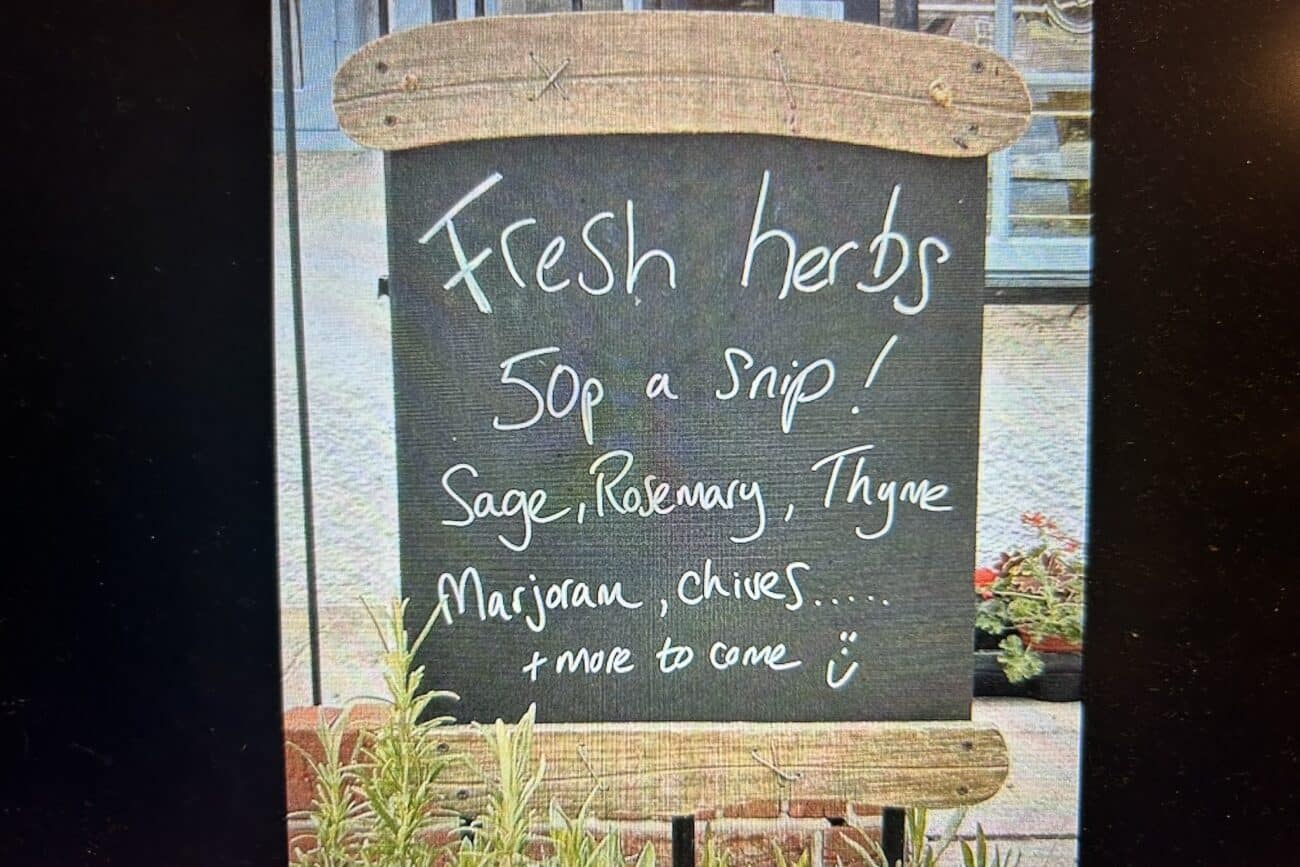 Fresh herbs
50p a snip!
Sage, Rosemary, Thyme
Marjoram, chives.....
+ more to come :)